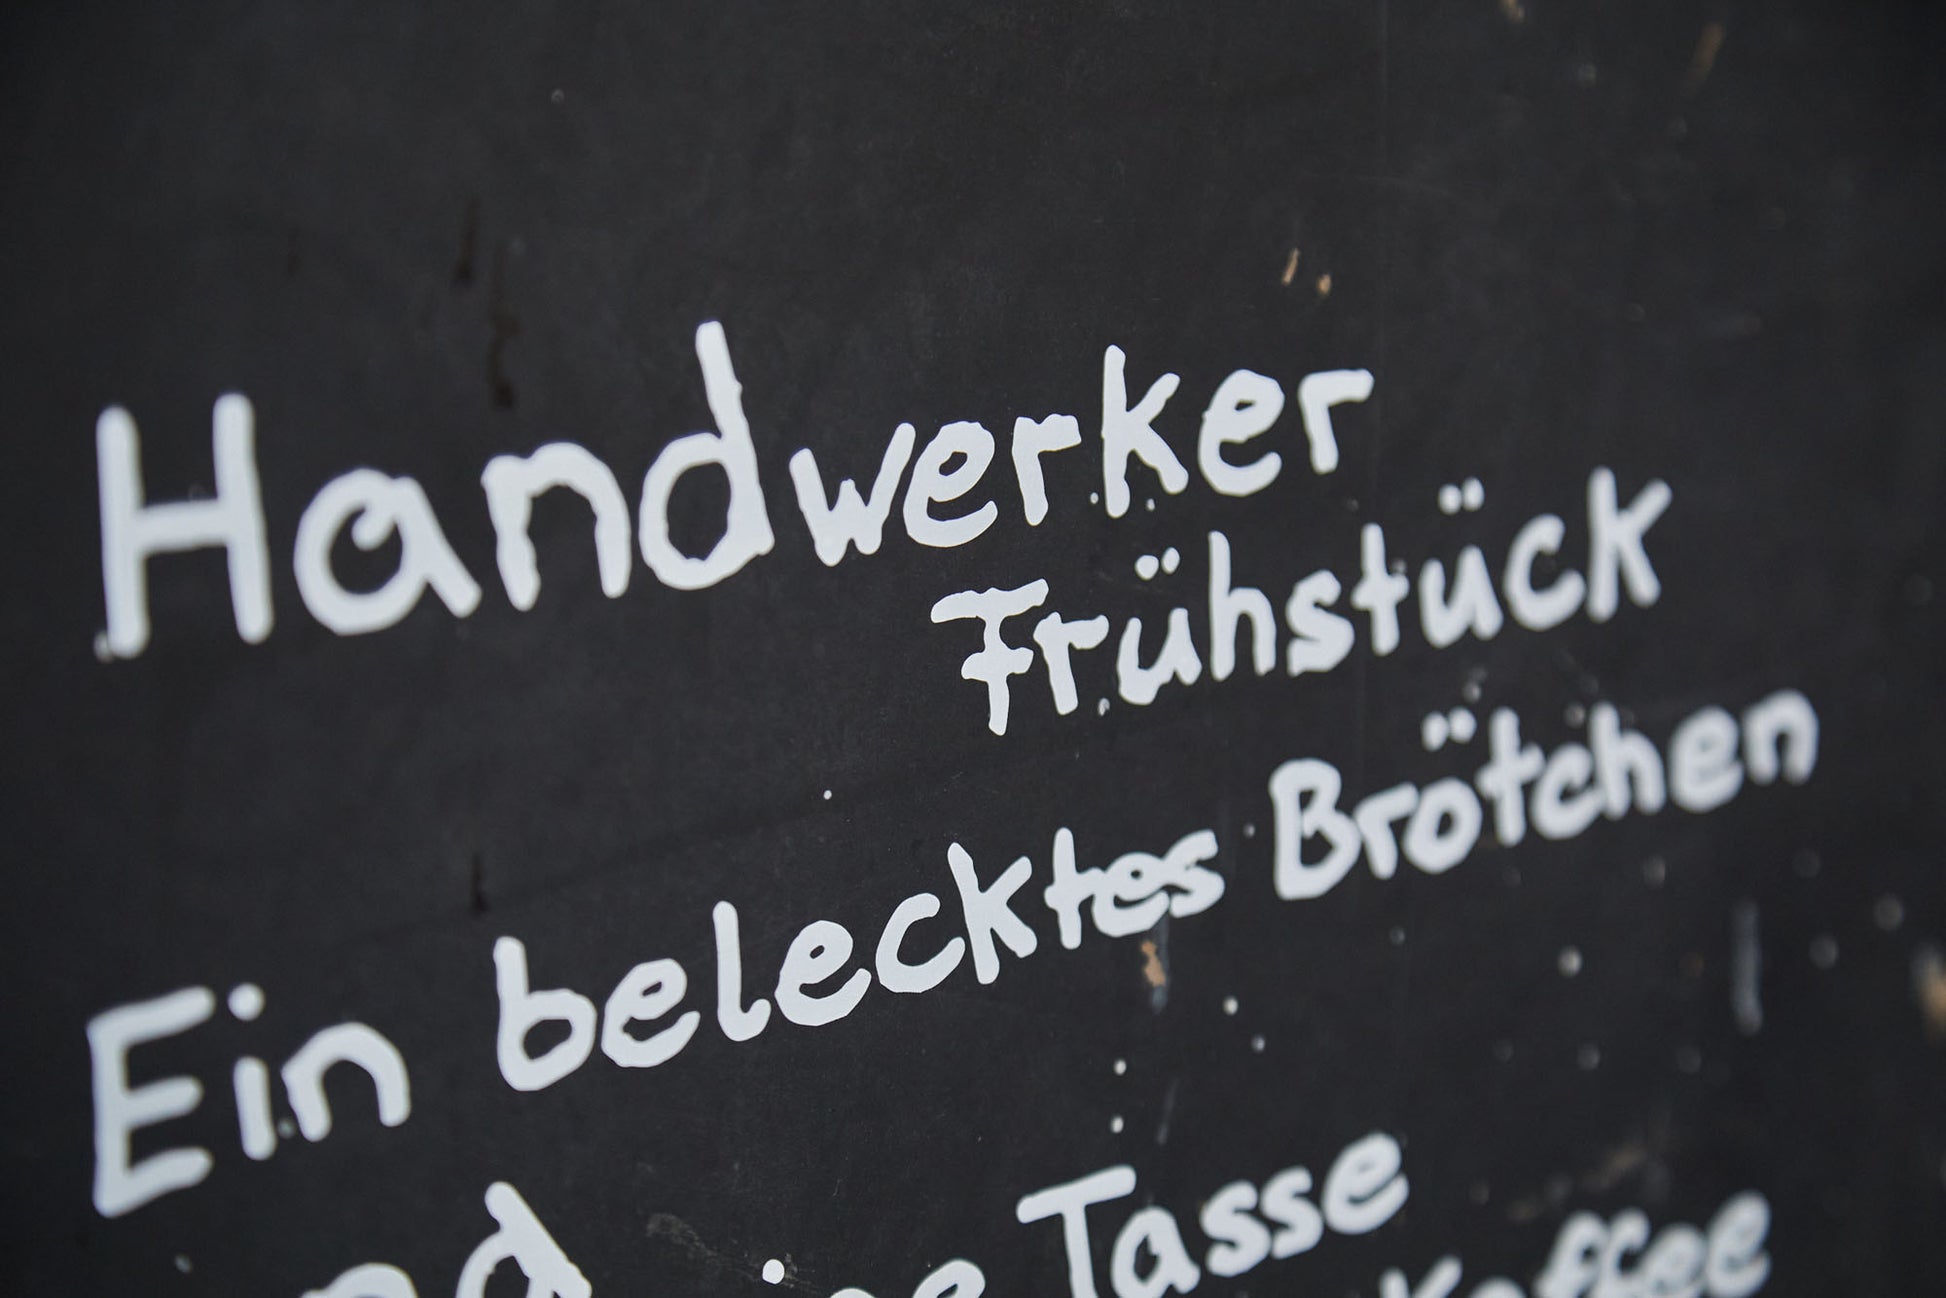 Handwerker
Frühstück
Ein belecktes Brötchen
und eine Tasse
Kaffee